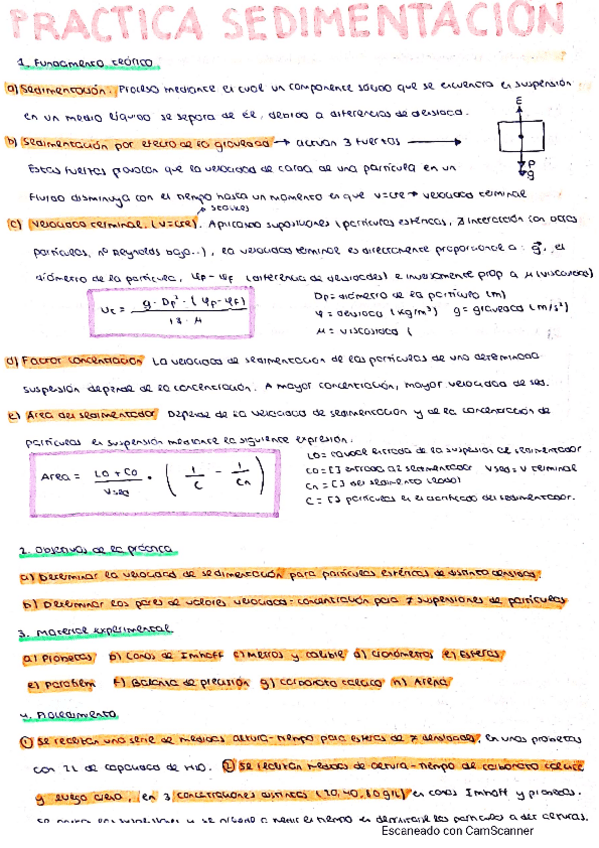 PRACTICA SEDIMENTACION
1. Fundamento teórico
a) Sedimentación: Proceso mediante el cual un componente sólido que se encuentra en suspensión
en un medio líquido se separa de él, debido a diferencias de densidad.
b) Sedimentación por efecto de la gravedad → actúan 3 fuerzas →
E
P
g
Estas fuerzas provocan que la velocidad de caída de una partícula en un
fluido disminuya con el tiempo hasta un momento en que v=cte → velocidad terminal
↳ stokes
c) Velocidad terminal. (v=cte). Aplicando suposiciones (partículas esféricas, ∄ interacción con otras
partículas, nº Reynolds bajo..), la velocidad terminal es directamente proporcional a: g, el
diámetro de la partícula, φp - φF (diferencia de densidades) e inversamente prop a μ (viscosidad)
Vt = g · Dp² · (φp - φF) / 18 · μ
Dp = diámetro de la partícula (m)
φ = densidad (kg/m³) g = gravedad (m/s²)
μ = viscosidad (
d) Factor concentración La velocidad de sedimentación de las partículas de una determinada
suspensión depende de la concentración. A mayor concentración, mayor velocidad de sed.
e) Área del sedimentador Depende de la velocidad de sedimentación y de la concentración de
partículas en suspensión mediante la siguiente expresión.
Area = LO + CO / Vsed · ( 1/C - 1/Cn )
LO = caudal entrada de la suspensión al sedimentador
CO = [] entrada al sedimentador Vsed = v terminal
Cn = [] del sedimento (lodo)
C = [] partículas en el clarificado del sedimentador.
2. Objetivos de la práctica
a) Determinar la velocidad de sedimentación para partículas esféricas de distinta densidad.
b) Determinar los pares de valores velocidad-concentración para 7 suspensiones de partículas
3. Material experimental
a) Probetas b) Conos de Imhoff c) Metros y calibre d) Cronómetros e) Esferas
e) Parafilm f) Balanza de precisión g) Carbonato cálcico h) Arena
4. Procedimiento
① Se realizan una serie de medidas altura-tiempo para esferas de 7 densidades, en unas probetas
con 2L de capacidad de H2O. ② Se realizan medidas de altura-tiempo de carbonato cálcico
y luego arena, en 3 concentraciones distintas (20, 40, 80 g/L) en conos Imhoff y probetas.
Escaneado con CamScanner